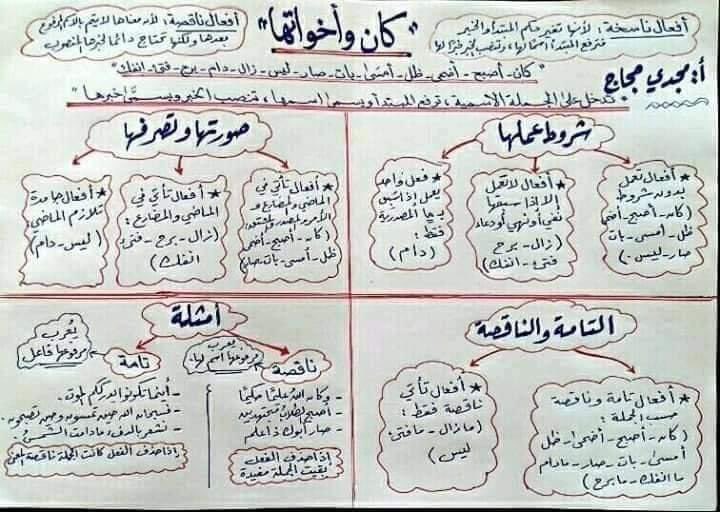 أفعال ناسخة: لأنها تغير حكم المبتدأ والخبر
فترفع المبتدأ اسمًا لها، وتنصب الخبر خبرًا لها
"كان وأخواتها"
أفعال ناقصة: لأن معناها لا يتم بالاسم المرفوع
بعدها ولكنها تحتاج دائمًا لخبرها المنصوب
أ: مجدي حجاج
"كان - أصبح - أضحى - ظل - أمسى - بات - صار - ليس - زال - دام - برح - فتئ - انفك"
تدخل على الجملة الاسمية، ترفع المبتدأ ويسمى اسمها، تنصب الخبر ويسمى خبرها
شروط عملها
* أفعال تعمل
بدون شروط
(كان - أصبح - أضحى
ظل - أمسى - بات
صار - ليس)
* أفعال لا تعمل
إلا إذا سبقها
نفي أو نهي أو دعاء
(زال - برح
فتئ - انفك)
* فعل واحد
يعمل إذا سُبق
بـ ما المصدرية
فقط:
(دام)
صورتها وتصرفها
* أفعال تأتي في
الماضي والمضارع و
الأمر والمصدر والمشتق:
(كان - أصبح - أضحى
ظل - أمسى - بات - صار)
* أفعال تأتي في
الماضي والمضارع:
(زال - برح - فتئ
انفك)
* أفعال جامدة
تلازم الماضي:
(ليس - دام)
التامة والناقصة
* أفعال تامة وناقصة
حسب الجملة:
(كان - أصبح - أضحى - ظل
أمسى - بات - صار - مادام
ما انفك - مابرح)
* أفعال تأتي
ناقصة فقط:
(مازال - مافتئ
ليس)
أمثلة
ناقصة
يعرب
مرفوعها اسم لها.
- وكان الله عليمًا حكيمًا
- أصبح الطلاب مجتهدين
- صار أبوك ذا علم
إذا حذف الفعل
بقيت الجملة مفيدة
تامة
يُعرب
مرفوعها فاعل
- أينما تكونوا يدرككم الموت.
- فسبحان الله حين تمسون وحين تصبحون.
- نشعر بالدفء مادامت الشمس.
إذا حذف الفعل كانت الجملة ناقصة المعنى